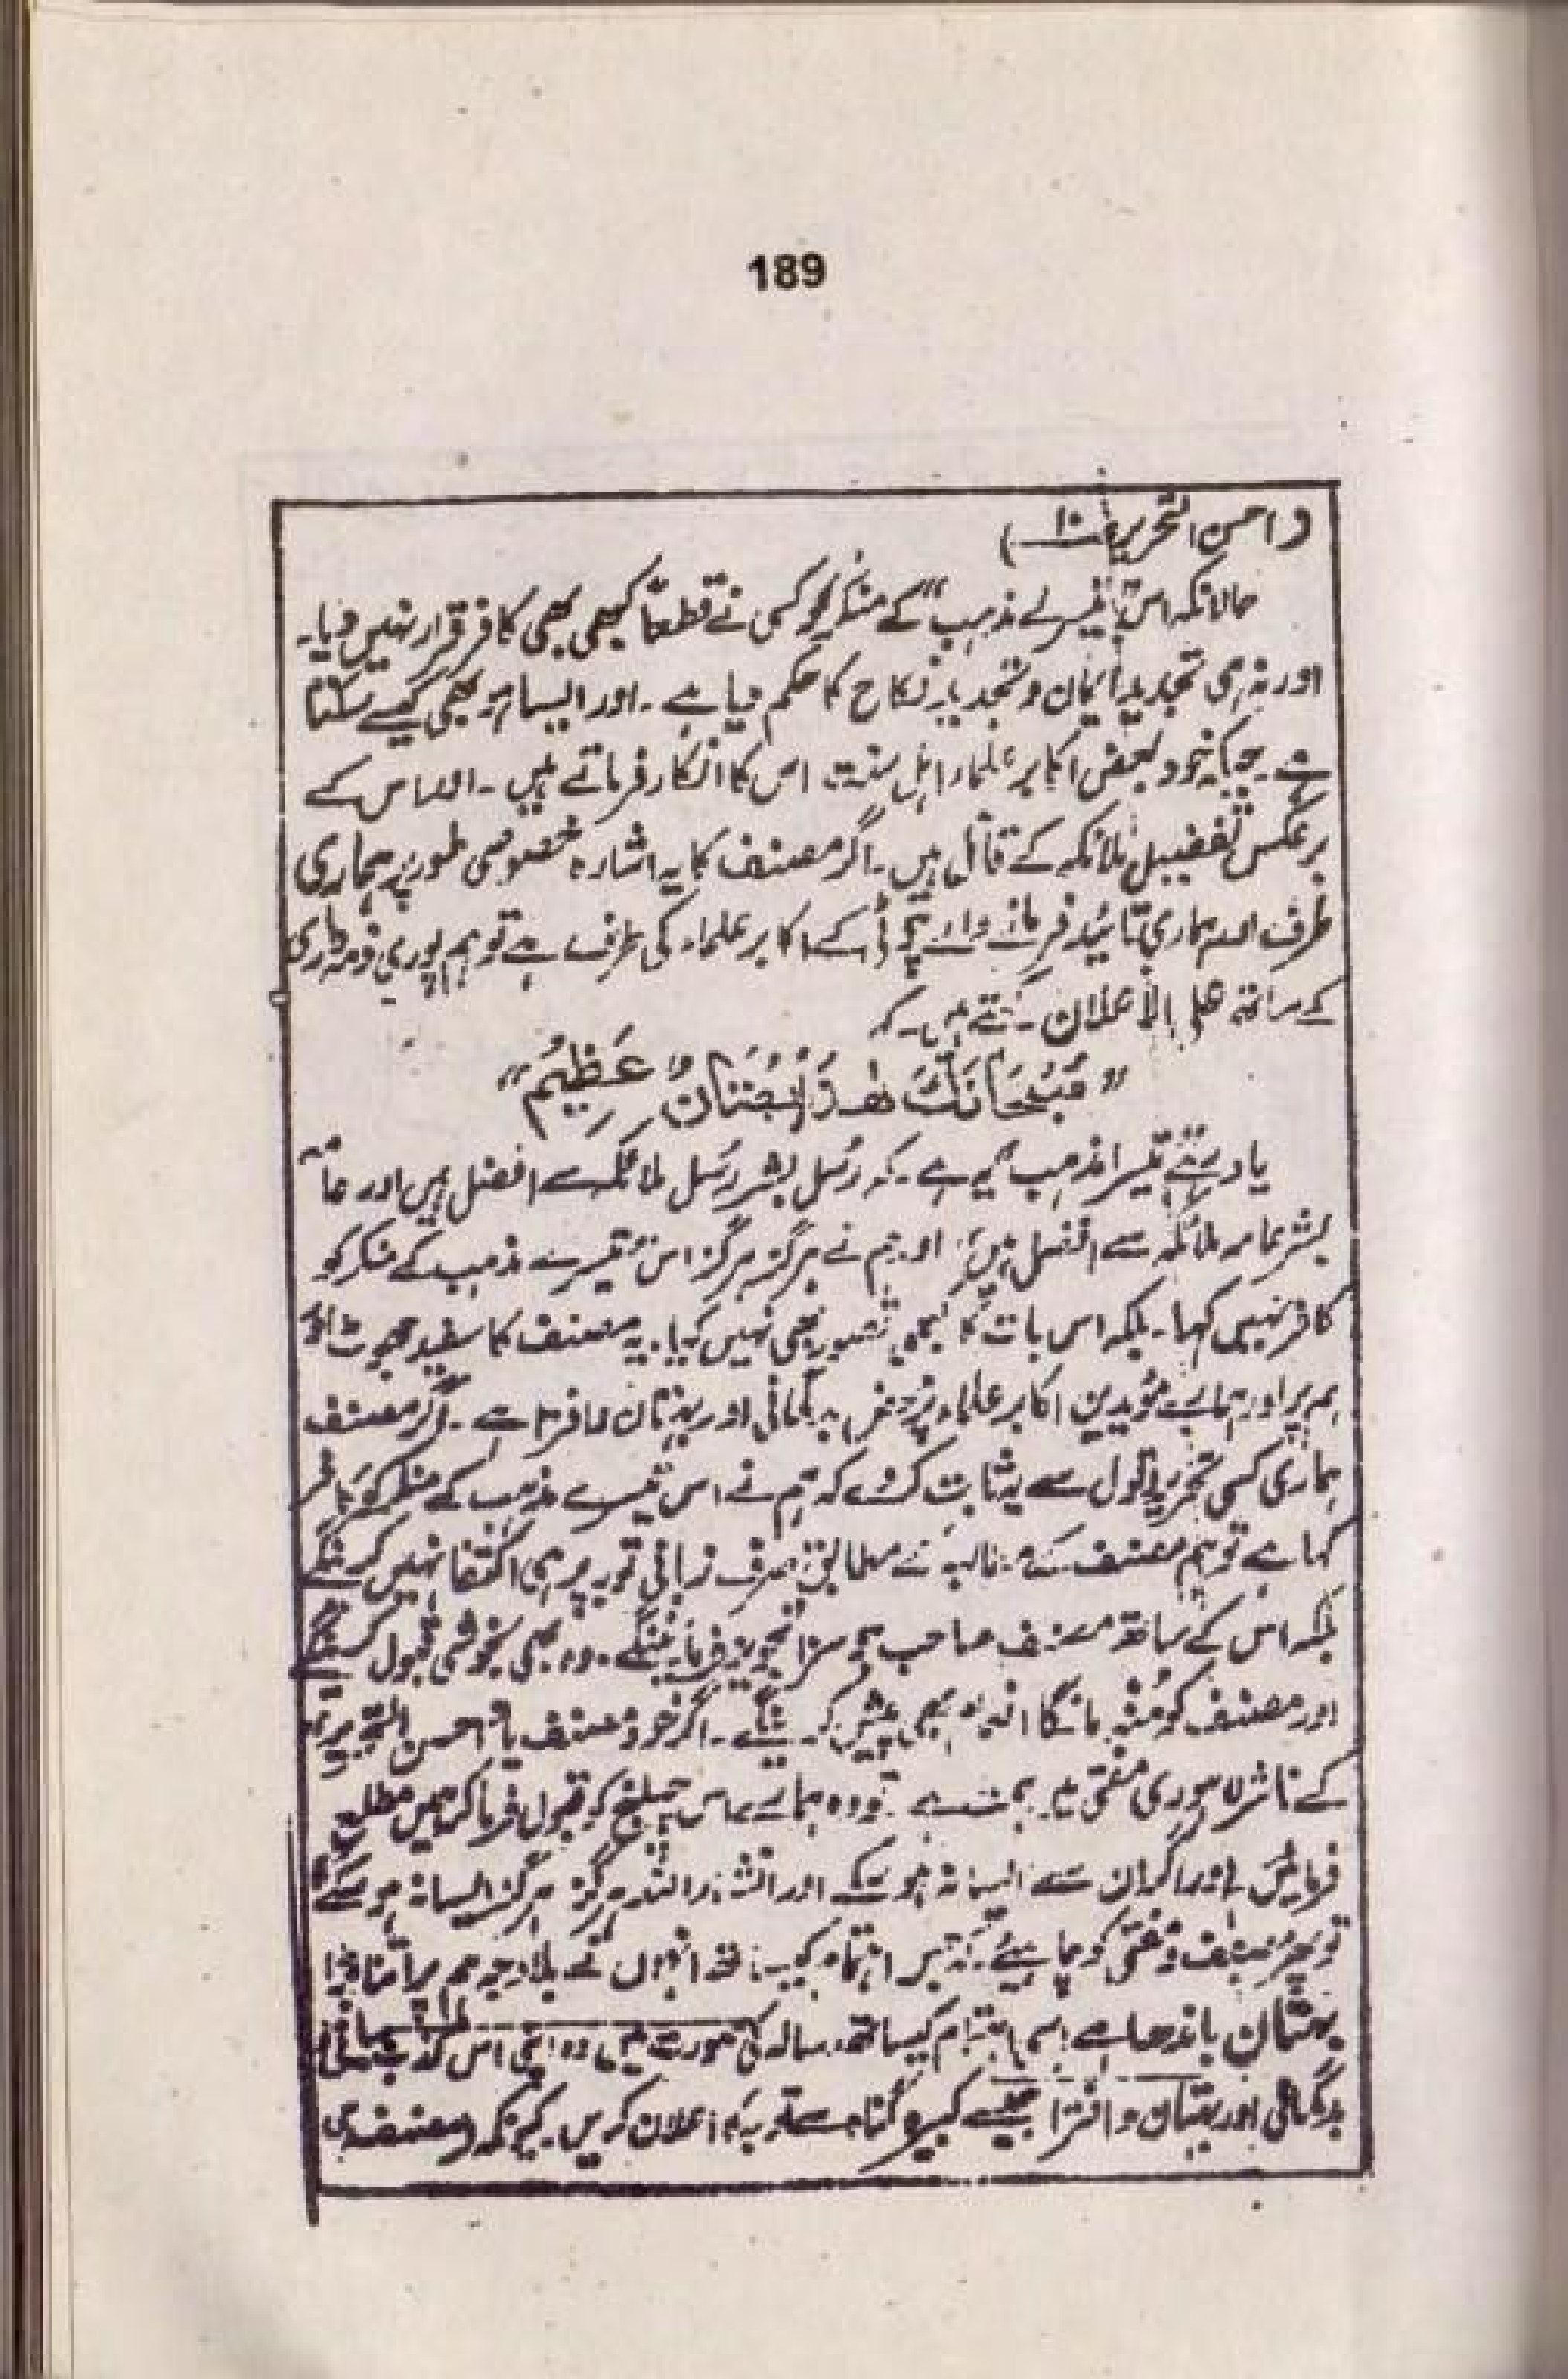 189
(احسن التحریر ص۱۰)
حالانکہ اس تیسرے مذہب" کے منکر کو کسی نے قطعاً کبھی بھی کافر قرار نہیں دیا۔
اور نہ ہی تجدید ایمان و تجدید نکاح کا حکم دیا ہے۔ اور ایسا ہو بھی کیسے سکتا
ہے۔ جبکہ خود بعض اکابر علماء اہل سنت اس کا انکار فرماتے ہیں۔ اور اس کے
برعکس تفضیل ملائکہ کے قائل ہیں۔ اگر مصنف کا یہ اشارہ خصوصی طور پر ہماری
طرف اور ہماری تائید فرمانے والے کے اکابر علماء کی طرف ہے تو ہم پوری ذمہ داری
کے ساتھ علی الاعلان کہتے ہیں۔ کہ
"سُبْحَانَكَ هٰذَا بُهْتَانٌ عَظِيْمٌ"
یاد رہے تیسرا مذہب یہ ہے۔ کہ رُسل بشر رُسل ملائکہ سے افضل ہیں اور عامۂ
بشر عامہ ملائکہ سے افضل ہیں، اور ہم نے ہرگز ہرگز اس تیسرے مذہب کے منکر کو
کافر نہیں کہا۔ بلکہ اس بات کا کبھی تصور بھی نہیں کیا۔ یہ مصنف کا سفید جھوٹ اور
ہم پر اور ہمارے مؤیدین اکابر علماء پر بدگمانی اور بہتان و افترا ہے۔ اگر مصنف
ہماری کسی تحریر یا قول سے یہ ثابت کر دے کہ ہم نے اس تیسرے مذہب کے منکر کو کافر
کہا ہے تو ہم مصنف کے مطالبہ کے مطابق صرف زبانی توبہ پر ہی اکتفا نہیں کرینگے
بلکہ اس کے ساتھ مصنف صاحب جو سزا تجویز فرمائینگے۔ وہ بھی بخوشی قبول کرینگے
اور مصنف کو مُنہ مانگا انعام بھی پیش کرینگے۔ اگر خود مصنف یا احسن التحریر
کے ناشر لاہوری مفتی میں ہمت ہے۔ تو وہ ہمارے اس چیلنج کو قبول فرما کر ہمیں مطلع
فرمائیں اور اگر ان سے ایسا نہ ہو سکے اور انشاء اللہ ہرگز ہرگز ایسا نہ ہو سکے
تو پھر مصنف و مفتی کو چاہیئے۔ کہ جس اہتمام کیساتھ انہوں نے بلا وجہ ہم پر اتنا بڑا
بہتان باندھا ہے اسی اہتمام کیساتھ رسالہ کی صورت میں وہ اپنی اس کذب بیانی
بدگمانی اور بہتان و افترا جیسے کبیرہ گناہ سے توبہ کا اعلان کریں۔ کیونکہ (مصنف ہی